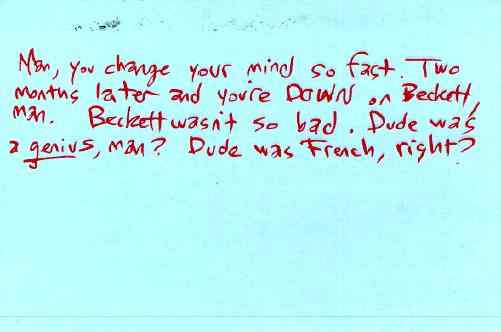 Man, you change your mind so fast. Two
months later and you're DOWN on Beckett,
man. Beckett wasn't so bad. Dude was
a genius, man? Dude was French, right?